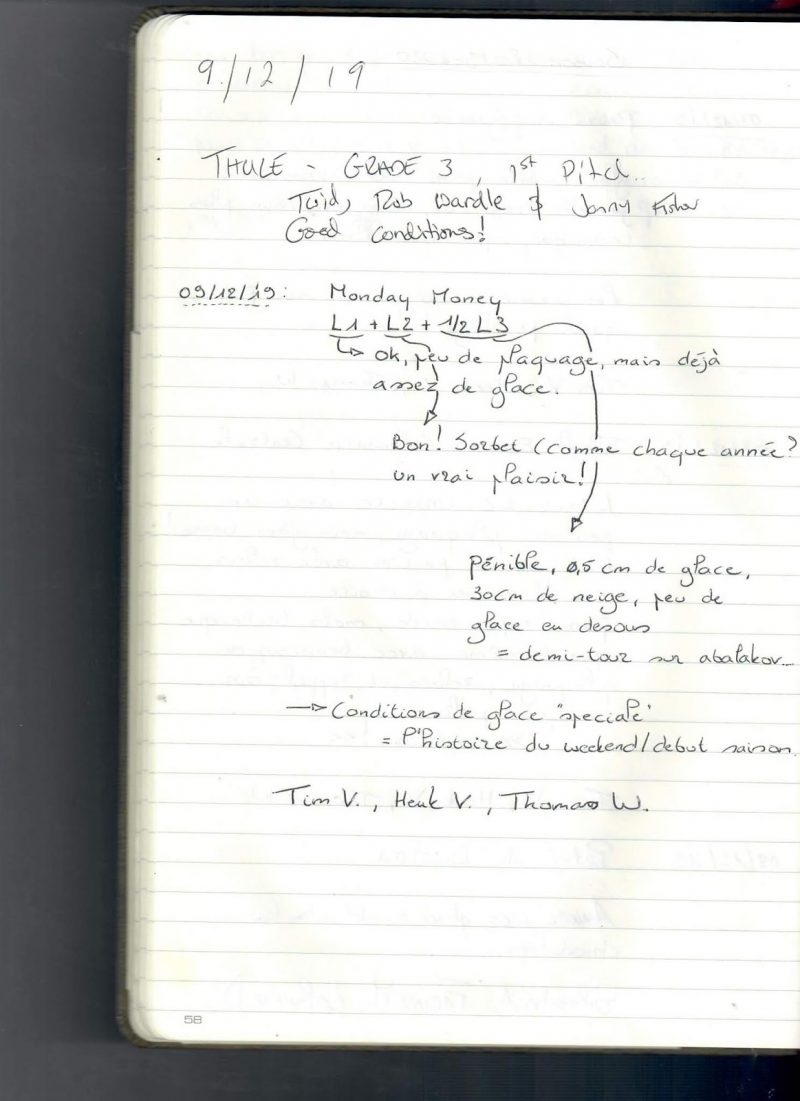 9./12/19
THULE - GRADE 3, 1st Pitch..
Rob Wardle & Jonny Fisher
Good conditions!
09/12/19: Monday Money
L1 + L2 + 1/2 L3
OK, peu de plaquage, mais déjà
assez de glace.
Bon! Sorbet (comme chaque année?
un vrai plaisir!
Pénible, 0,5 cm de glace,
30cm de neige, peu de
glace en desous
= demi-tour sur abalakov...
Conditions de glace "speciale"
= l'histoire du weekend/debut saison.
Tim V., Henk V., Thomas W.
58